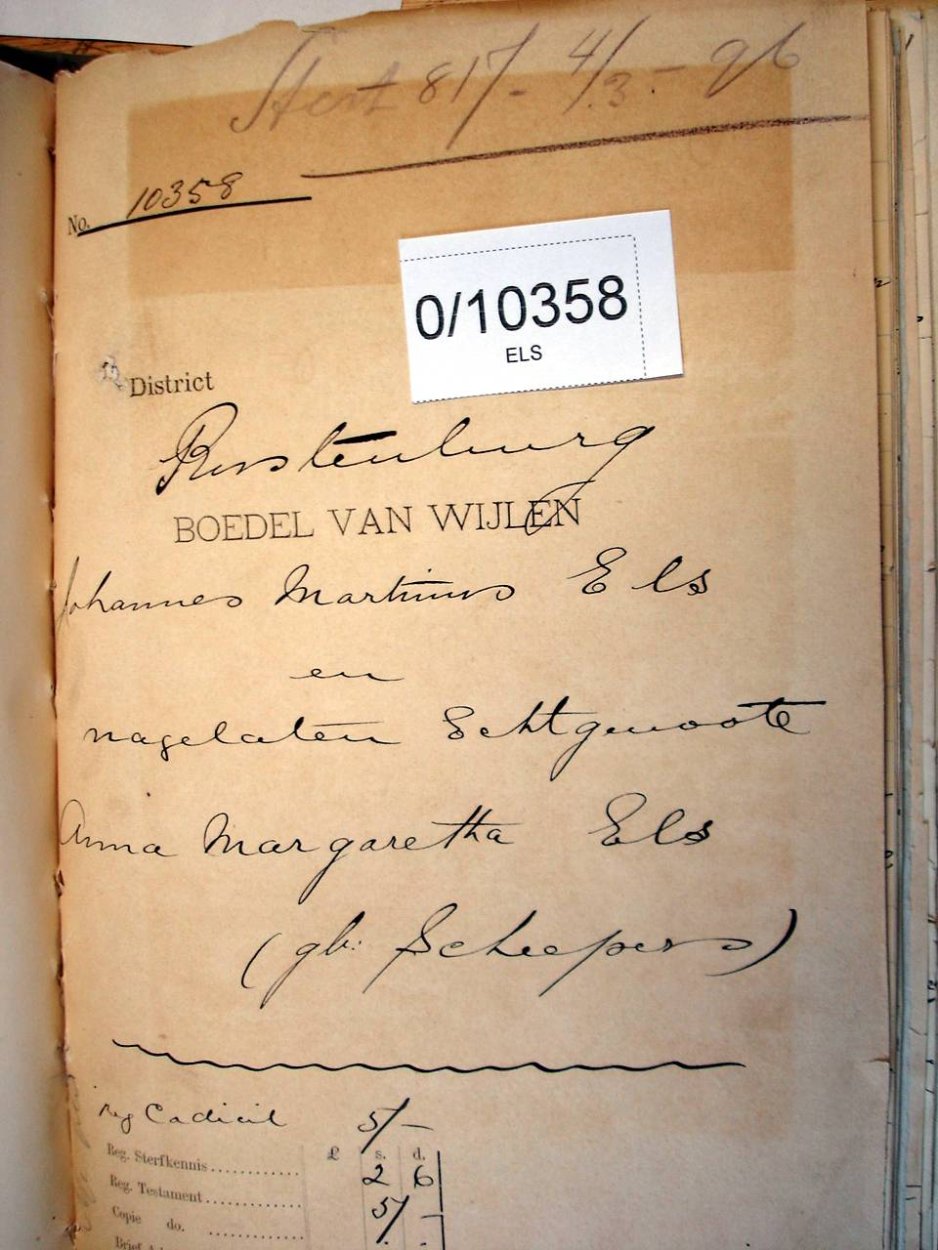 817 - 4/3 - 96
No. 10358
0/10358
ELS
District
Rustenburg
BOEDEL VAN WIJLEN
Johannes Martinus Els
en
nagelaten Echtgenoote
Anna Margaretha Els
(gb: Scheepers)
Reg Codicil 5/-
£ s. d.
Reg. Sterfkennis 2 6
Reg. Testament 5/-
Copie do.